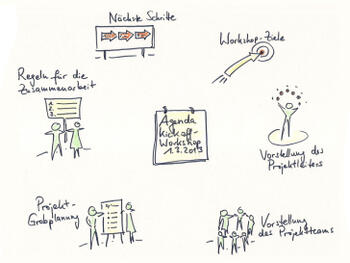 Nächste Schritte
Workshop-Ziele
Regeln für die
Zusammenarbeit
1.
2.
3.
Agenda
Kickoff-
Workshop
1.2.2013
Vorstellung des
Projektleiters
Projekt-
Grobplanung
Vorstellung
des Projektteams